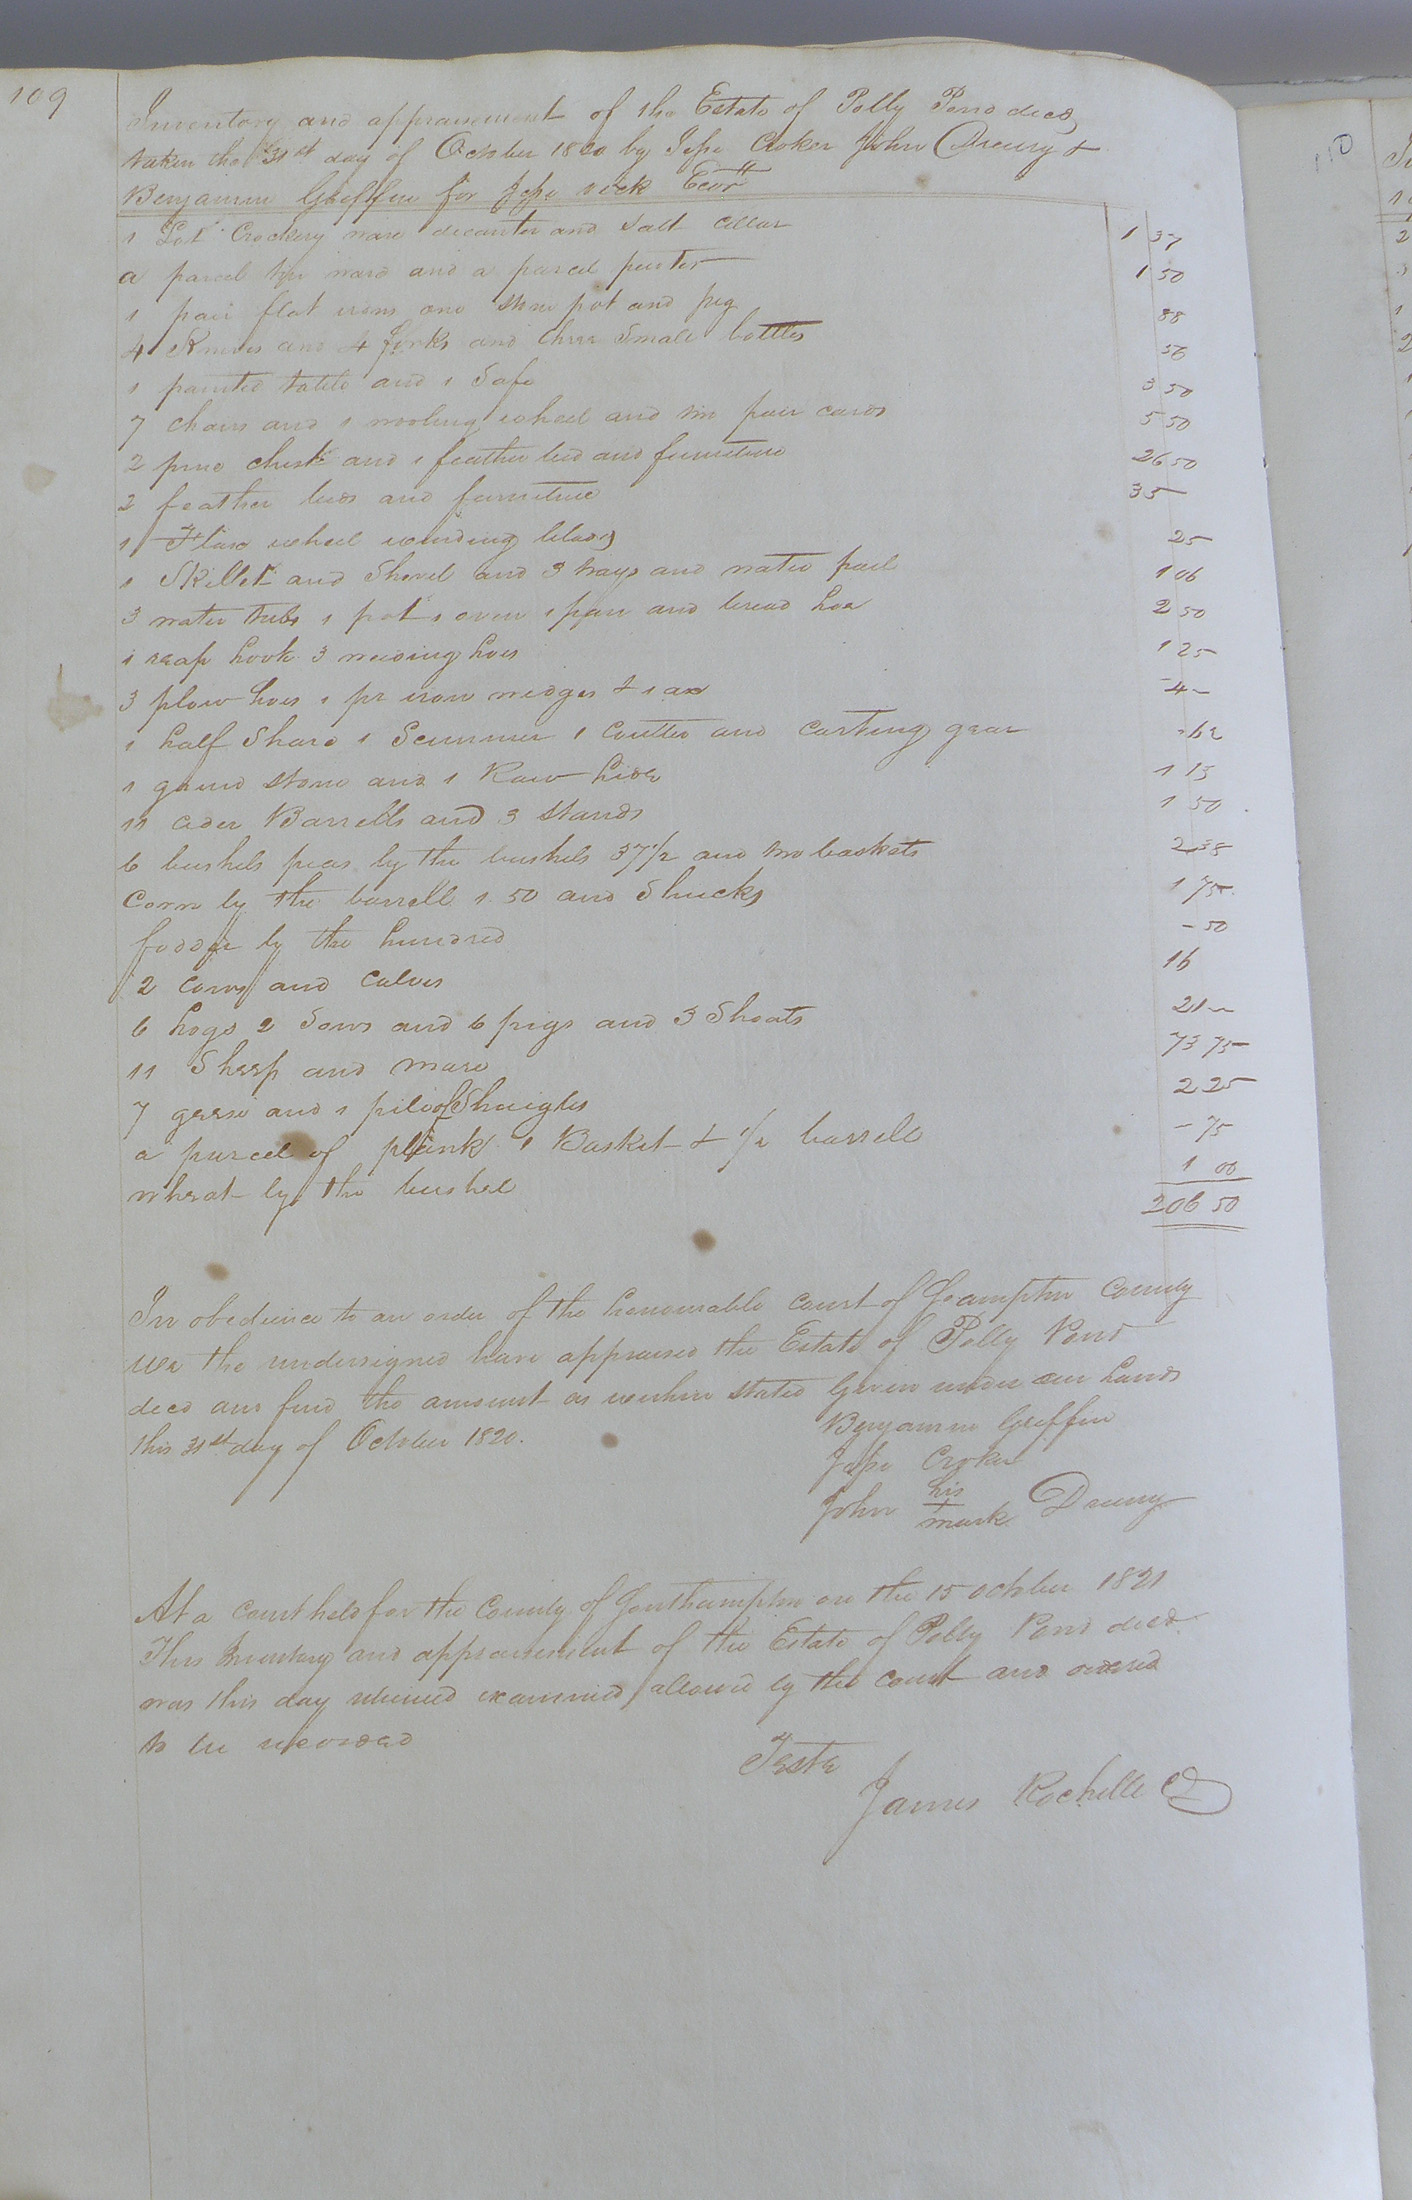 109
Inventory and appraisement of the Estate of Polly Pond decd
taken the 31st day of October 1820 by Jesse Croker John Drewry &
Benjamin Griffin for Jesse
1 Lot Crockery ware decanter and Salt Cellar 1 37
a parcel tin ware and a parcel pewter 1 50
1 pair flat irons one stone pot and jug 88
4 Knives and 4 forks and three Small bottles 50
1 painted table and 1 Safe 3 50
7 chairs and 1 wooling wheel and two pair cards 5 50
2 pine chests and 1 feather bed and furniture 26 50
2 feather beds and furniture 35
1 Flax wheel winding blades 25
1 Skillet and Shovel and 3 trays and water pail 1 06
3 water tubs 1 pot 1 oven 1 pan and bread hoe 2 50
1 reap hook 3 weeding hoes 1 25
3 plow hoes 1 pr iron wedges & 1 ax 4
1 half Share 1 Scummer 1 Coulter and Carting gear 62
1 grind stone and 1 Raw hide 1 13
11 cider Barrells and 3 stands 1 50
6 bushels peas by the bushels 37 1/2 and two baskets 2 38
Corn by the barrell 1.50 and Shucks 1 75
fodder by the hundred - 50
2 cows and calves 16
6 hogs 2 Sows and 6 pigs and 3 Shoats 21
11 Sheep and mare 73 75
7 geese and 1 pile of Shingles 2 25
a parcel of plank 1 Basket & 1/2 barrell - 75
wheat by the bushel 1 00
206 50
In obedience to an order of the honourable court of Soampton County
We the undersigned have appraised the Estate of Polly Pond
decd and find the amount as within stated Given under our hands
this 31st day of October 1820.
Benjamin Griffin
Jesse Croker
John his mark Drewry
At a Court held for the County of Southampton on the 15 October 1821
This Inventory and appraisement of the Estate of Polly Pond decd
was this day returned examined allowed by the Court and ordered
to be recorded
Teste
James Rochelle
110